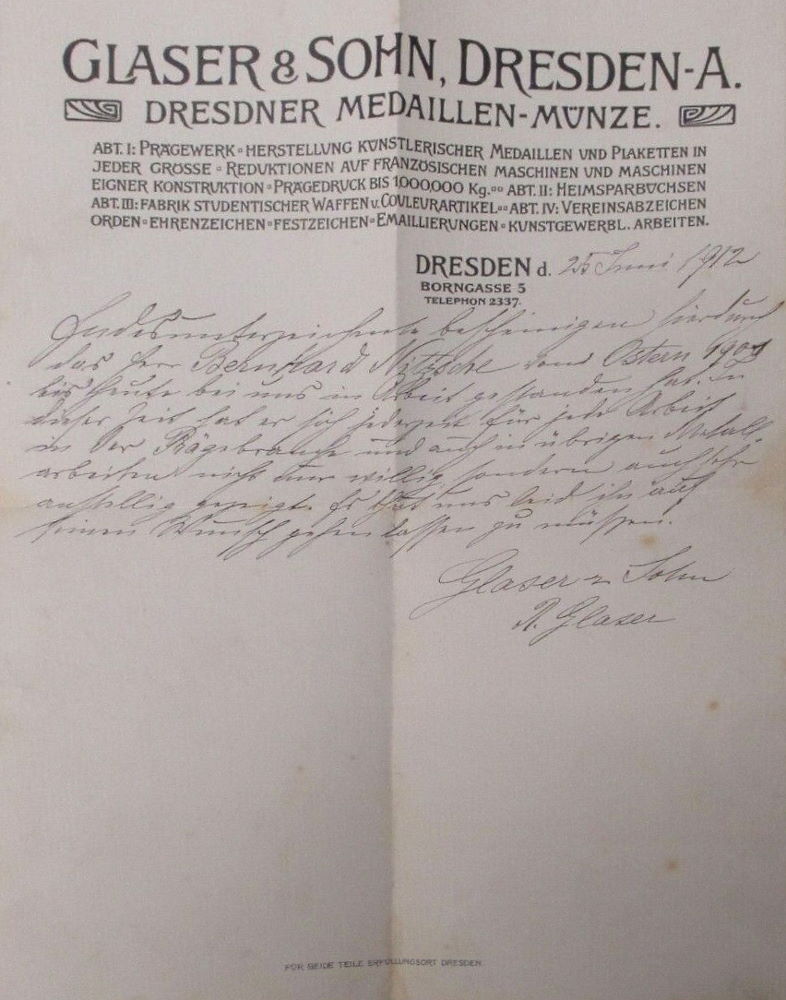 GLASER & SOHN, DRESDEN-A.
DRESDNER MEDAILLEN-MÜNZE.
ABT. I: PRÄGEWERK ▫ HERSTELLUNG KÜNSTLERISCHER MEDAILLEN UND PLAKETTEN IN
JEDER GRÖSSE ▫ REDUKTIONEN AUF FRANZÖSISCHEN MASCHINEN UND MASCHINEN
EIGNER KONSTRUKTION ▫ PRÄGEDRUCK BIS 1,000,000 Kg. ▫▫ ABT. II: HEIMSPARBÜCHSEN
ABT. III: FABRIK STUDENTISCHER WAFFEN u. COULEURARTIKEL ▫▫ ABT. IV: VEREINSABZEICHEN
ORDEN ▫ EHRENZEICHEN ▫ FESTZEICHEN ▫ EMAILLIERUNGEN ▫ KUNSTGEWERBL. ARBEITEN.
DRESDEN d. 25 Juni 1912
BORNGASSE 5
TELEPHON 2337.
Endesunterzeichnete bescheinigen hierdurch
das Herr Bernhard Nitzsche vom Ostern
bis heute bei uns in Arbeit gestanden hat. In
dieser Zeit hat er sich jederzeit für jede Arbeit
in der Prägebranche und auch in übrigen Metall-
arbeiten nicht nur willig, sondern auch sehr
anstellig gezeigt. Es thut uns leid ihn auf
seinen Wunsch gehen lassen zu müssen.
Glaser & Sohn
R. Glaser
FÜR BEIDE TEILE ERFÜLLUNGSORT DRESDEN.